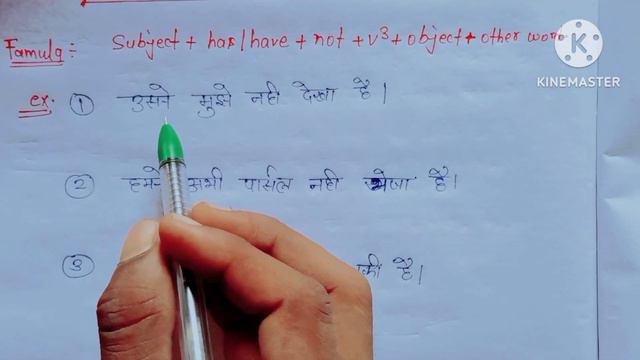 Famula:- Subject + has/have + not + v³ + object + other word
KINEMASTER
ex. ① उसने मुझे नही देखा है।
② हमने अभी पार्सल नही भेजा है।
③ की है।